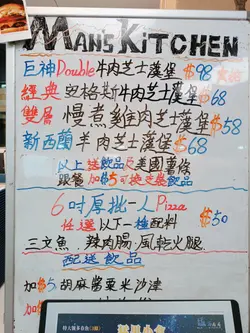 MAN'S KITCHEN
巨神Double牛肉芝士漢堡$98
經典安格斯牛肉芝士漢堡$68
雙層慢煮雞肉芝士漢堡$58
新西蘭羊肉芝士漢堡$68
以上送飲品及美國薯條
跟餐加$5可換支裝飲品
6吋厚批一人Pizza
任選以下一種配料 $50
三文魚、辣肉腸、風乾火腿
配送飲品
加$5胡麻醬粟米沙津